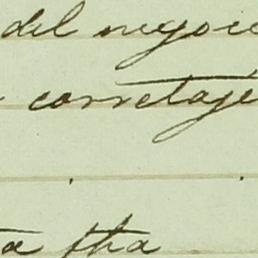 del negoci
corretaje
ta fha